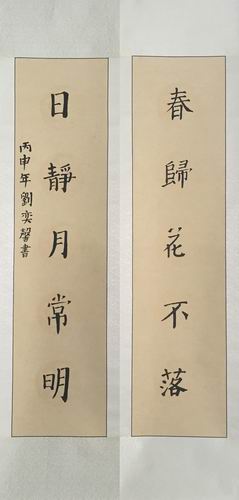 春歸花不落
日靜月常明
丙申年劉奕馨書